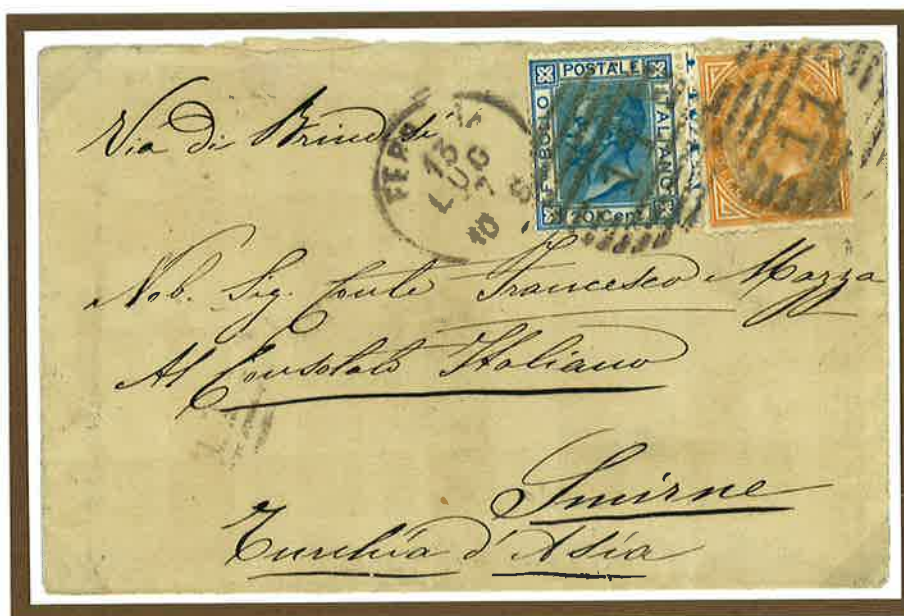 Via di Brindisi
FER
13
LUG
10 S
POSTALE
FBOLLO
ITALIANO
20 Cent
11
Nob. Sig. Conte Francesco Mazza
Al Consolato Italiano
Smirne
Turchia d'Asia